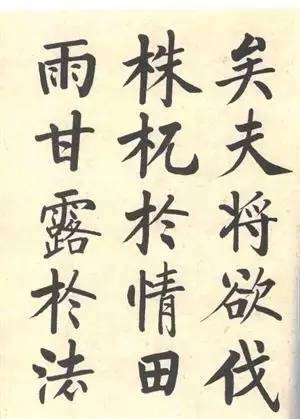 矣夫将欲伐
株杌於情田
雨甘露於法